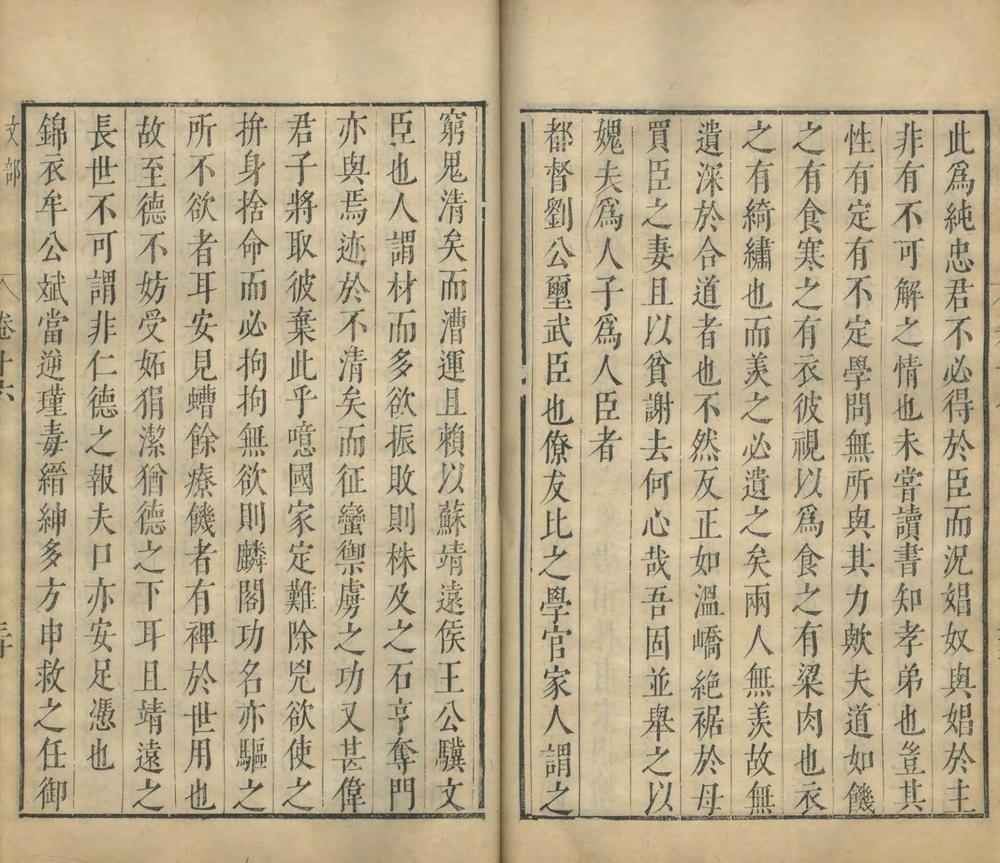 此爲純忠君不必得於臣而況娼奴與娼於主
非有不可解之情也未嘗讀書知孝弟也豈其
性有定有不定學問無所與其力歟夫道如饑
之有食寒之有衣彼視以爲食之有粱肉也衣
之有綺繡也而羨之必遺之矣兩人無羨故無
遺深於合道者也不然反正如溫嶠絕裾於母
買臣之妻且以貧謝去何心哉吾固並舉之以
媿夫爲人子爲人臣者
都督劉公璽武臣也僚友比之學官家人謂之
窮鬼清矣而漕運且賴以蘇靖遠侯王公驥文
臣也人謂材而多欲振敗則株及之石亨奪門
亦與焉迹於不清矣而征蠻禦虜之功又甚偉
君子將取彼棄此乎噫國家定難除兇欲使之
拚身捨命而必拘拘無欲則麟閣功名亦驅之
所不欲者耳安見螬餘療饑者有裨於世用也
故至德不妨受妬狷潔猶德之下耳且靖遠之
長世不可謂非仁德之報夫口亦安足憑也
錦衣牟公斌當逆瑾毒縉紳多方申救之任御
文部
卷十六